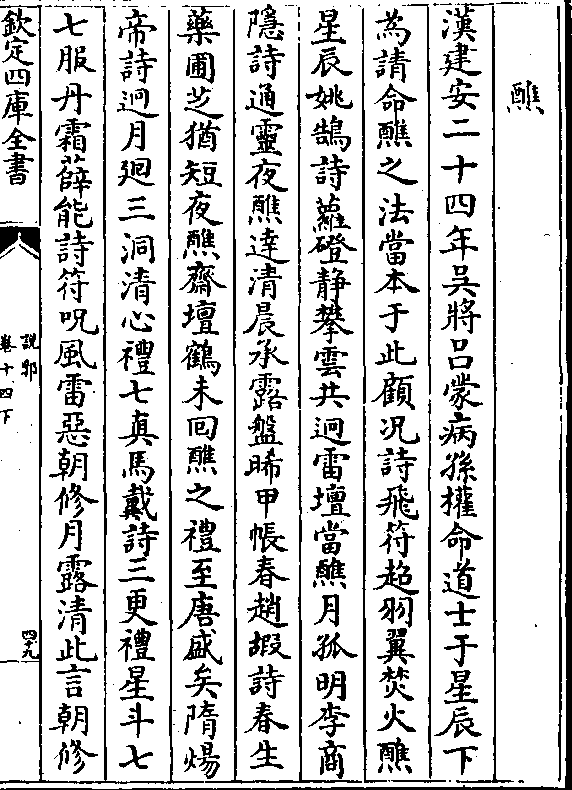 醮
漢建安二十四年吳將呂蒙病孫權命道士于星辰下
為請命醮之法當本于此顧况詩飛符超羽翼焚火醮
星辰姚鵠詩蘿磴静攀雲共迥雷壇當醮月孤明李商
隱詩通靈夜醮達清晨承露盤晞甲帳春趙嘏詩春生
藥圃芝猶短夜醮齋壇鶴未回醮之禮至唐盛矣隋煬
帝詩迥月廻三洞清心禮七真馬戴詩三更禮星斗七
七服丹霜薛能詩符呪風雷惡朝修月露清此言朝修
欽定四庫全書
說郛
卷十四下
四十九